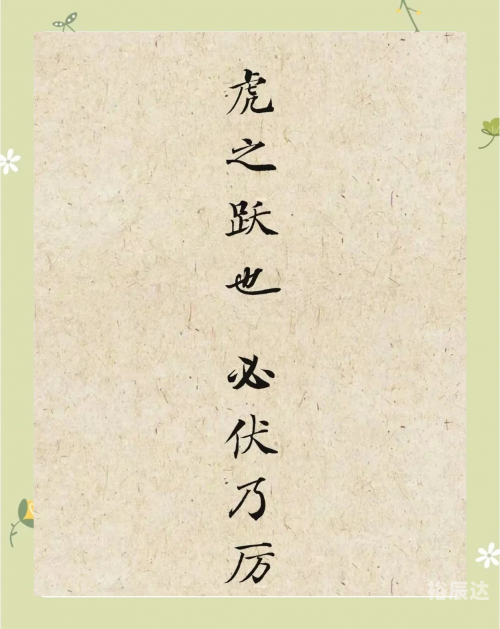 虎之跃也 必伏乃厉
裕辰达